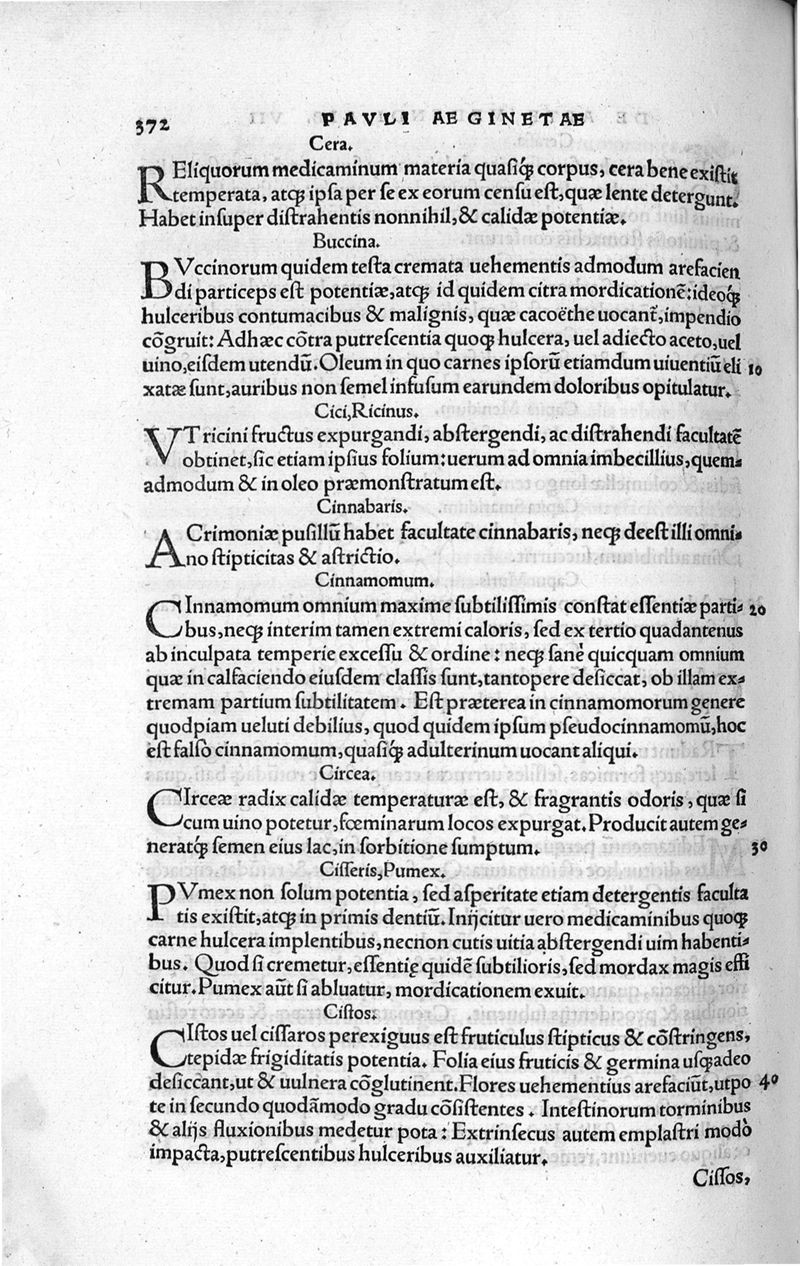 372 PAVLI AEGINETAE
Cera.
REliquorum medicaminum materia quasiq́; corpus, cera bene existit
temperata, atq; ipsa per se ex eorum censu est, quæ lente detergunt.
Habet insuper distrahentis nonnihil, & calidæ potentiæ.
Buccina.
BVccinorum quidem testa cremata uehementis admodum arefacien
di particeps est potentiæ, atq; id quidem citra mordicationē: ideoq́;
hulceribus contumacibus & malignis, quæ cacoëthe uocant̃, impendio
cōgruit: Adhæc cōtra putrescentia quoq; hulcera, uel adiecto aceto, uel
uino, eisdem utendū. Oleum in quo carnes ipsorū etiamdum uiuentiū eli 10
xatæ sunt, auribus non semel infusum earundem doloribus opitulatur.
Cici, Ricinus.
VT ricini fructus expurgandi, abstergendi, ac distrahendi facultatē
obtinet, sic etiam ipsius folium: uerum ad omnia imbecillius, quem-
admodum & in oleo præmonstratum est.
Cinnabaris.
ACrimoniæ pusillū habet facultate cinnabaris, neq; deest illi omni-
no stipticitas & astrictio.
Cinnamomum.
CInnamomum omnium maxime subtilissimis constat essentiæ parti- 20
bus, neq; interim tamen extremi caloris, sed ex tertio quadantenus
ab inculpata temperie excessu & ordine: neq; sanè quicquam omnium
quæ in calfaciendo eiusdem classis sunt, tantopere desiccat, ob illam ex-
tremam partium subtilitatem. Est præterea in cinnamomorum genere
quodpiam ueluti debilius, quod quidem ipsum pseudocinnamomū, hoc
est falso cinnamomum, quasiq́; adulterinum uocant aliqui.
Circea.
CIrceæ radix calidæ temperaturæ est, & fragrantis odoris, quæ si
cum uino potetur, fœminarum locos expurgat. Producit autem ge-
neratq́; semen eius lac, in sorbitione sumptum. 30
Cisseris, Pumex.
PVmex non solum potentia, sed asperitate etiam detergentis faculta
tis existit, atq; in primis dentiū. Inijcitur uero medicaminibus quoq;
carne hulcera implentibus, necnon cutis uitia abstergendi uim habenti-
bus. Quod si cremetur, essentię quidē subtilioris, sed mordax magis effi
citur. Pumex aūt si abluatur, mordicationem exuit.
Cistos.
CIstos uel cissaros perexiguus est fruticulus stipticus & cōstringens,
tepidæ frigiditatis potentia. Folia eius fruticis & germina usq; adeo
desiccant, ut & uulnera cōglutinent. Flores uehementius arefaciūt, utpo 40
te in secundo quodāmodo gradu cōsistentes. Intestinorum torminibus
& alijs fluxionibus medetur pota: Extrinsecus autem emplastri modò
impacta, putrescentibus hulceribus auxiliatur.
Cissos,